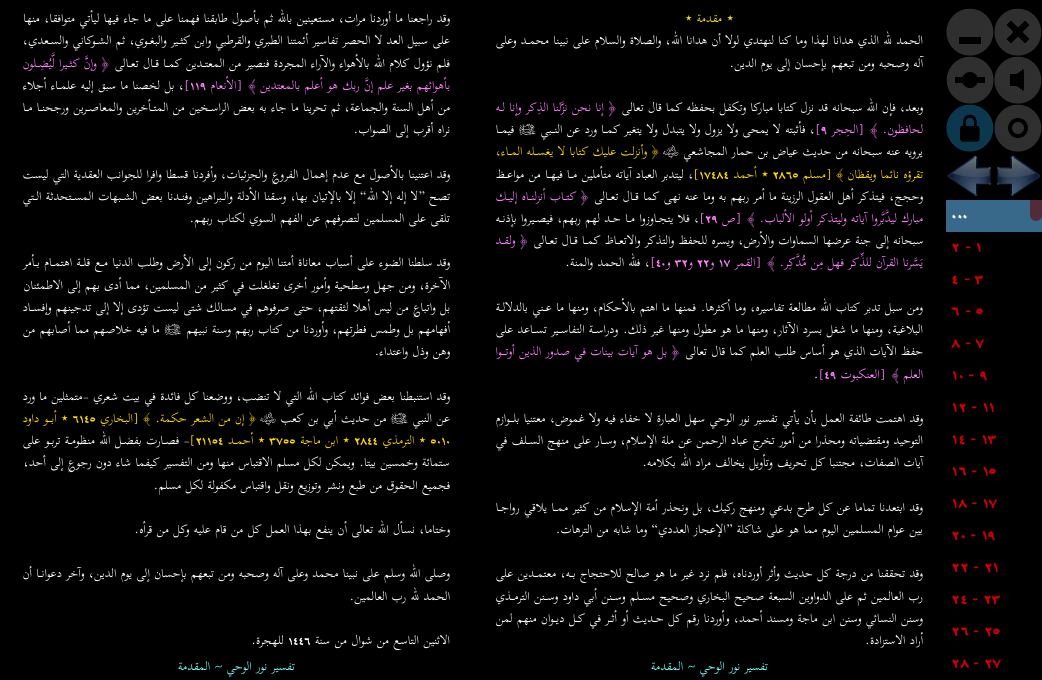 * مقدمة *
الحمد لله الذي هدانا لهذا وما كنا لنهتدي لولا أن هدانا الله، والصلاة والسلام على نبينا محمد وعلى
آله وصحبه ومن تبعهم بإحسان إلى يوم الدين.
وبعد، فإن الله سبحانه قد نزل كتابا مباركا وتكفل بحفظه كما قال تعالى ﴿ إنا نحن نزَّلنا الذِكر وإنا لـه
لحافظون. ﴾ [الحِجر ٩]، فأثبته لا يمحى ولا يزول ولا يتبدل ولا يتغير كما ورد عن النبي ﷺ فيما
يرويه عنه سبحانه من حديث عياض بن حمار المجاشعي ﴿ وأنزلت عليك كتابا لا يغسله الماء،
تقرؤه نائما ويقظان ﴾ [مسلم ٢٨٦٥ * أحمد ١٧٤٨٤]، ليتدبر العباد آياته متأملين ما فيها من مواعظ
وحجج، فيتذكر أهل العقول الرزينة ما أمر ربهم به وما عنه نهى كما قال تعالى ﴿ كتاب أنزلناه إليك
مبارك ليدَّبَّروا آياته وليتذكر أولو الألباب. ﴾ [ص ٢٩]، فلا يتجاوزوا ما حد لهم ربهم، فيصيروا بإذنه
سبحانه إلى جنة عرضها السماوات والأرض، ويسره للحفظ والتذكر والاتعاظ كما قال تعالى ﴿ ولقد
يَسَّرنا القرآن للذِّكر فهل مِن مُّدَّكِر. ﴾ [القمر ١٧ و٢٢ و٣٢ و٤٠]، فلله الحمد والمنة.
ومن سبل تدبر كتاب الله مطالعة تفاسيره، وما أكثرها. فمنها ما اهتم بالأحكام، ومنها ما عني بالدلالة
البلاغية، ومنها ما شغل بسرد الآثار، ومنها ما هو مطول ومنها غير ذلك. ودراسة التفاسير تساعد على
حفظ الآيات الذي هو أساس طلب العلم كما قال تعالى ﴿ بل هو آيات بينات في صدور الذين أوتوا
العلم ﴾ [العنكبوت ٤٩].
وقد اهتمت طائفة العمل بأن يأتي تفسير نور الوحي سهل العبارة لا خفاء فيه ولا غموض، معتنيا بلوازم
التوحيد ومقتضياته ومحذرا من أمور تخرج عباد الرحمن عن ملة الإسلام، وسار على منهج السلف في
آيات الصفات، مجتنبا كل تحريف وتأويل يخالف مراد الله بكلامه.
وقد ابتعدنا تماما عن كل طرح بدعي ومنهج ركيك، بل ونحذر أمة الإسلام من كثير مما يلاقي رواجا
بين عوام المسلمين اليوم مما هو على شاكلة ”الإعجاز العددي“ وما شابه من الترهات.
وقد تحققنا من درجة كل حديث وأثر أوردناه، فلم نرد غير ما هو صالح للاحتجاج به، معتمدين على
رب العالمين ثم على الدواوين السبعة صحيح البخاري وصحيح مسلم وسنن أبي داود وسنن الترمذي
وسنن النسائي وسنن ابن ماجة ومسند أحمد، وأوردنا رقم كل حديث أو أثر في كل ديوان منهم لمن
أراد الاستزادة.
تفسير نور الوحي ~ المقدمة
وقد راجعنا ما أوردنا مرات، مستعينين بالله ثم بأصول طابقنا فهمنا على ما جاء فيها ليأتي متوافقا، منها
على سبيل العد لا الحصر تفاسير أئمتنا الطبري والقرطبي وابن كثير والبغوي، ثم الشوكاني والسعدي،
فلم نؤول كلام الله بالأهواء والآراء المجردة فنصير من المعتدين كما قال تعالى ﴿ وإنَّ كثيرا لَّيُضِلون
بأهوائهم بغير علم إنَّ ربك هو أعلم بالمعتدين ﴾ [الأنعام ١١٩]، بل لخصنا ما سبق إليه علماء أجلاء
من أهل السنة والجماعة، ثم تحرينا ما جاء به بعض الراسخين من المتأخرين والمعاصرين ورجحنا ما
نراه أقرب إلى الصواب.
وقد اعتنينا بالأصول مع عدم إهمال الفروع والجزئيات، وأفردنا قسطا وافرا للجوانب العقدية التي ليست
تصح ”لا إله إلا الله“ إلا بالإتيان بها، وسقنا الأدلة والبراهين وفندنا بعض الشبهات المستحدثة التي
تلقى على المسلمين لتصرفهم عن الفهم السوي لكتاب ربهم.
وقد سلطنا الضوء على أسباب معاناة أمتنا اليوم من ركون إلى الأرض وطلب الدنيا مع قلة اهتمام بأمر
الآخرة، ومن جهل وسطحية وأمور أخرى تغلغلت في كثير من المسلمين، مما أدى بهم إلى الاطمئنان
بل واتباع من ليس أهلا لثقتهم، حتى صرفوهم في مسالك شتى ليست تؤدى إلا إلى تدجينهم وإفساد
أفهامهم بل وطمس فطرتهم، وأوردنا من كتاب ربهم وسنة نبيهم ﷺ ما فيه خلاصهم مما أصابهم من
وهن وذل واعتداء.
وقد استنبطنا بعض فوائد كتاب الله التي لا تنضب، ووضعنا كل فائدة في بيت شعري -متمثلين ما ورد
عن النبي ﷺ من حديث أبي بن كعب ﴿ إن من الشعر حكمة. ﴾ [البخاري ٦١٤٥ * أبو داود
٥٠١٠ * الترمذي ٢٨٤٤ * ابن ماجة ٣٧٥٥ * أحمد ٢١١٥٤]- فصارت بفضل الله منظومة تربو على
ستمائة وخمسين بيتا. ويمكن لكل مسلم الاقتباس منها ومن التفسير كيفما شاء دون رجوع إلى أحد،
فجميع الحقوق من طبع ونشر وتوزيع ونقل واقتباس مكفولة لكل مسلم.
وختاما، نسأل الله تعالى أن ينفع بهذا العمل كل من قام عليه وكل من قرأه.
وصلى الله وسلم على نبينا محمد وعلى آله وصحبه ومن تبعهم بإحسان إلى يوم الدين، وآخر دعوانا أن
الحمد لله رب العالمين.
الاثنين التاسع من شوال من سنة ١٤٤٦ للهجرة.
تفسير نور الوحي ~ المقدمة
***
١ - ٢
٣ - ٤
٥ - ٦
٧ - ٨
٩ - ١٠
١١ - ١٢
١٣ - ١٤
١٥ - ١٦
١٧ - ١٨
١٩ - ٢٠
٢١ - ٢٢
٢٣ - ٢٤
٢٥ - ٢٦
٢٧ - ٢٨